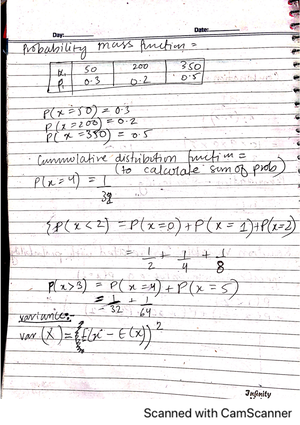 Day: Date:
Probability mass function =
xi 50 200 350
Pi 0.3 0.2 0.5
P(x=50) = 0.3
P(x=200) = 0.2
P(x=350) = 0.5
Cummolative distribution function =
(to calculate sum of prob)
P(x=4) = 1/32
{P(x<2) = P(x=0)+P(x=1)+P(x=2)
= 1/2 + 1/4 + 1/8
P(x>3) = P(x=4)+P(x=5)
= 1/32 + 1/64
variance:-
var(X) = {E(x - E(x))²
Infinity
Scanned with CamScanner